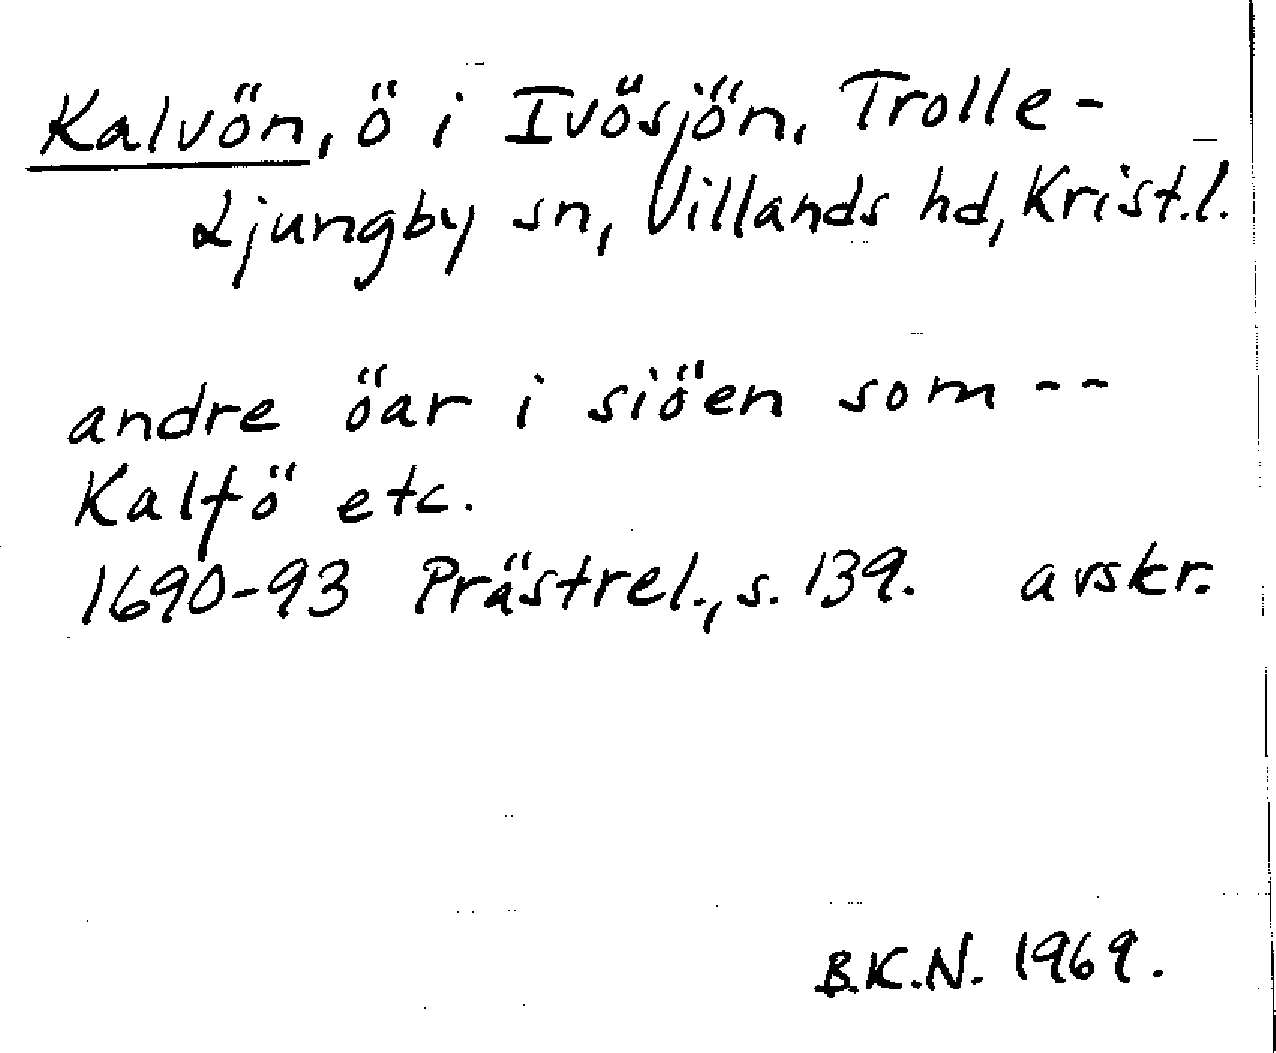 Kalvön, ö i Ivösjön, Trolle-
Ljungby sn, Villands hd, Krist.l.
andre öar i siöen som --
Kalfö etc.
1690-93 Prästrel., s. 139. avskr.
B.K.N. 1969.